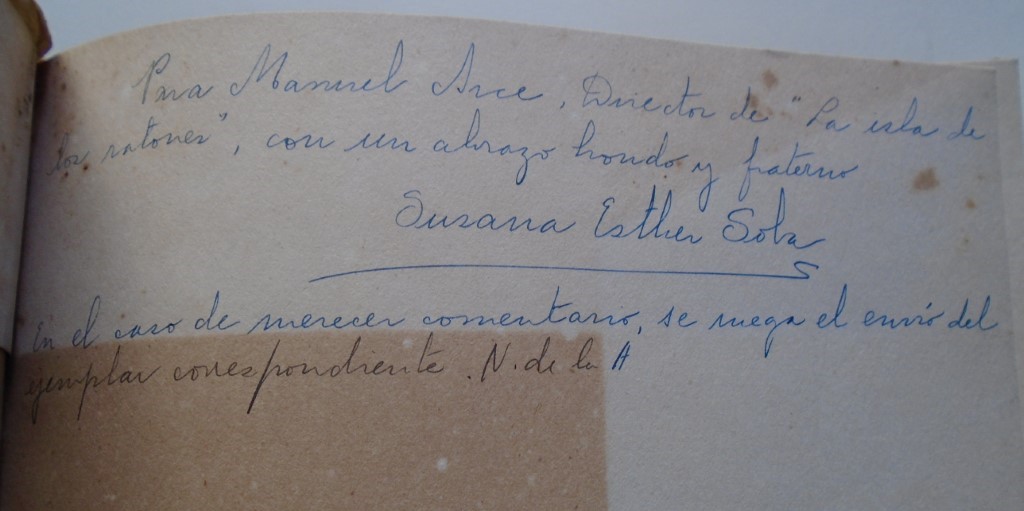 Para Manuel Arce, Director de "La isla de
los ratones", con un abrazo hondo y fraterno
Susana Esther Soba
En el caso de merecer comentario, se ruega el envió del
ejemplar correspondiente. N. de la A